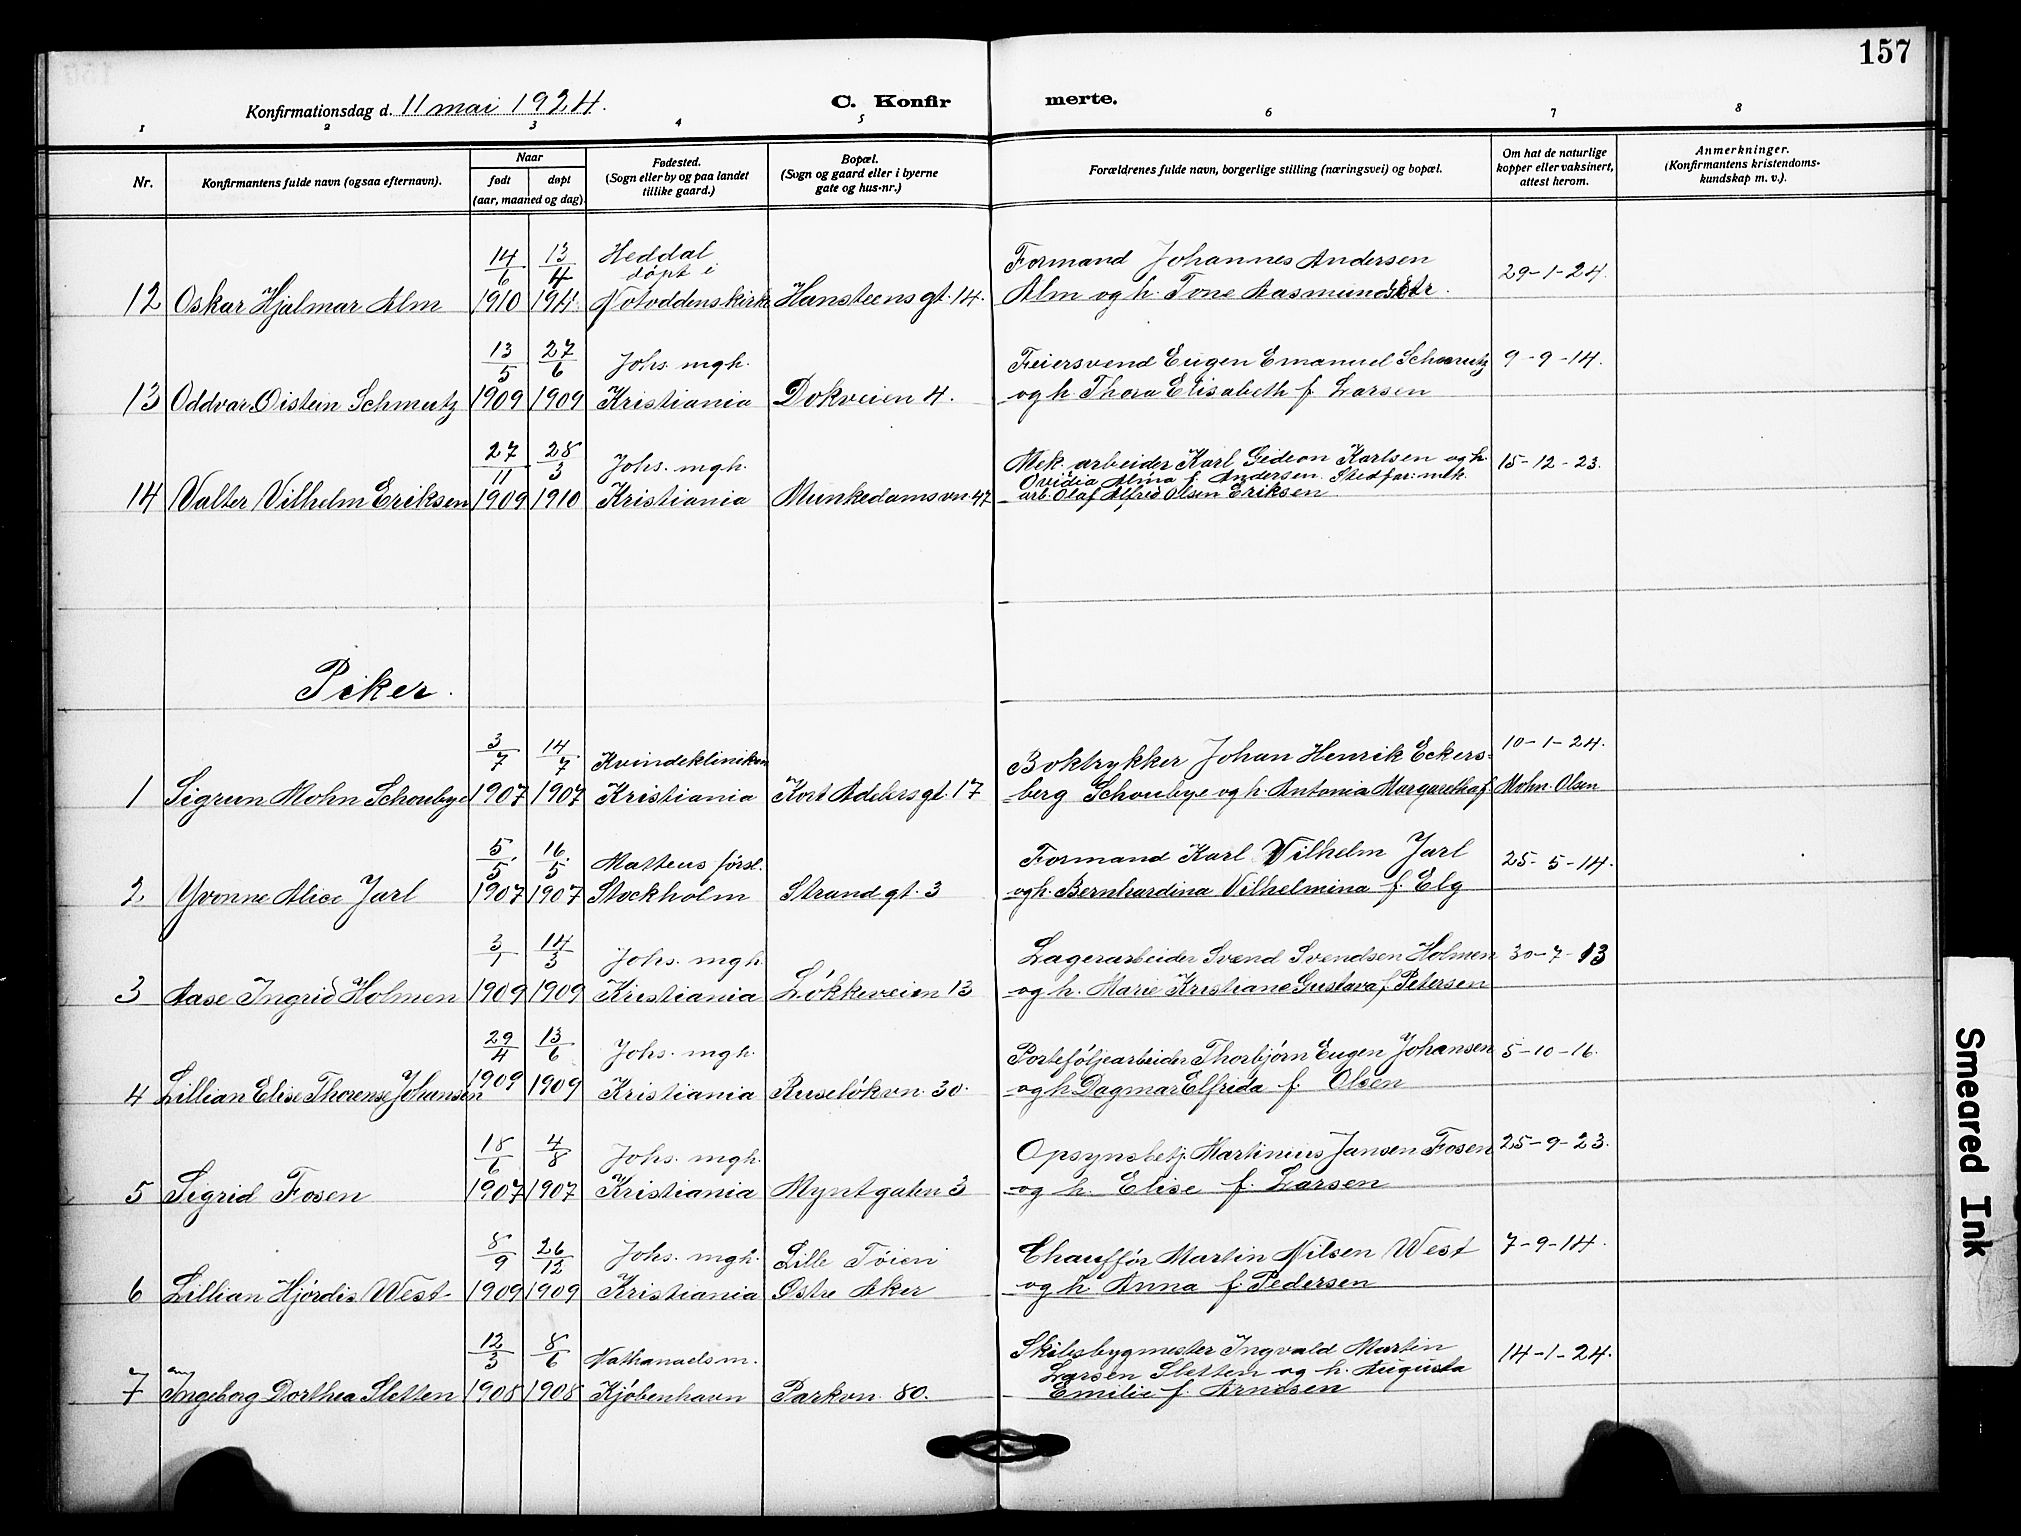 157
Konfirmationsdag d. 11 mai 1924.
C. Konfir merte.
1 2 3 4 5 6 7 8
Nr.
Konfirmantens fulde navn (ogsaa efternavn).
Naar
født døpt
(aar, maaned og dag)
Fødested.
(Sogn eller by og paa landet
tillike gaard.)
Bopæl.
(Sogn og gaard eller i byerne
gate og hus-nr.)
Forældrenes fulde navn, borgerlige stilling (næringsvei) og bopæl.
Om hat de naturlige
kopper eller vaksinert,
attest herom.
Anmerkninger.
(Konfirmantens kristendoms-
kundskap m. v.).
14/6 13/4 Heddal Formand Johannes Andersen
døpt i 29-1-24.
12 Oskar Hjalmar Alm 1910 1911 Notoddens kirke Hansteensgt. 14. Alm og h. Tone Aasmundsdtr.
13/5 27/6 Johs. mgh. Feiersvend Eugen Emanuel Schmutz 9-9-14.
13 Oddvar Øistein Schmutz 1909 1909 Kristiania Dokveien 4. og h Thora Elisabeth f. Larsen
27/11 28/3 Johs. mgh. Mek. arbeider Karl Gideon Karlsen og h. 15-12-23.
Ovidia Alma f. Andersen. Stedfar: mek.
14 Valter Vilhelm Eriksen 1909 1910 Kristiania Munkedamsvn. 47 arb. Olaf Alfred Olsen Eriksen
Piker.
3/7 14/7 Kvindekliniken Boktrykker Johan Henrik Eckers- 10-1-24.
1 Sigrun Mohn Schoubye 1907 1907 Kristiania Kort Adelersgt. 17 berg Schoubye og h. Antonia Margaretha f. Mohn Olsen
5/5 16/5 Matteus førsl. Formand Karl Vilhelm Jarl 25-5-14.
2 Yvonne Alice Jarl 1907 1907 Stockholm Strandgt. 3 og h. Bernhardina Vilhelmina f. Elg
3/1 14/3 Johs. mgh. Lagerarbeider Svend Svendsen Holmen 30-7-13
3 Aase Ingrid Holmen 1909 1909 Kristiania Løkkeveien 13 og h. Marie Kristiane Gustava f. Petersen
29/4 13/6 Johs. mgh. Porteføljearbeider Thorbjørn Eugen Johansen 5-10-16.
4 Lillian Elise Thorense Johansen 1909 1909 Kristiania Ruseløkvn. 30. og h Dagmar Elfrida f. Olsen
18/6 4/8 Johs. mgh. Opsynsbetj. Martinius Jansen Fosen 25-9-23.
5 Sigrid Fosen 1907 1907 Kristiania Myntgaten 3 og h. Elise f. Larsen
8/9 26/12 Johs. mgh. Lille Tøien Chauffør Martin Nilsen West 7-9-14.
6 Lillian Hjørdis West 1909 1909 Kristiania Østre Aker og h. Anna f. Pedersen
12/3 8/6 Nathanaels m. Skibsbygmester Ingvald Martin 14-1-24.
Larsen Sletten og h. Augusta
7 Ingeborg Dorthea Sletten 1908 1908 Kjøbenhavn Parkvn. 80. Emilie f. Arndsen
Smeared Ink